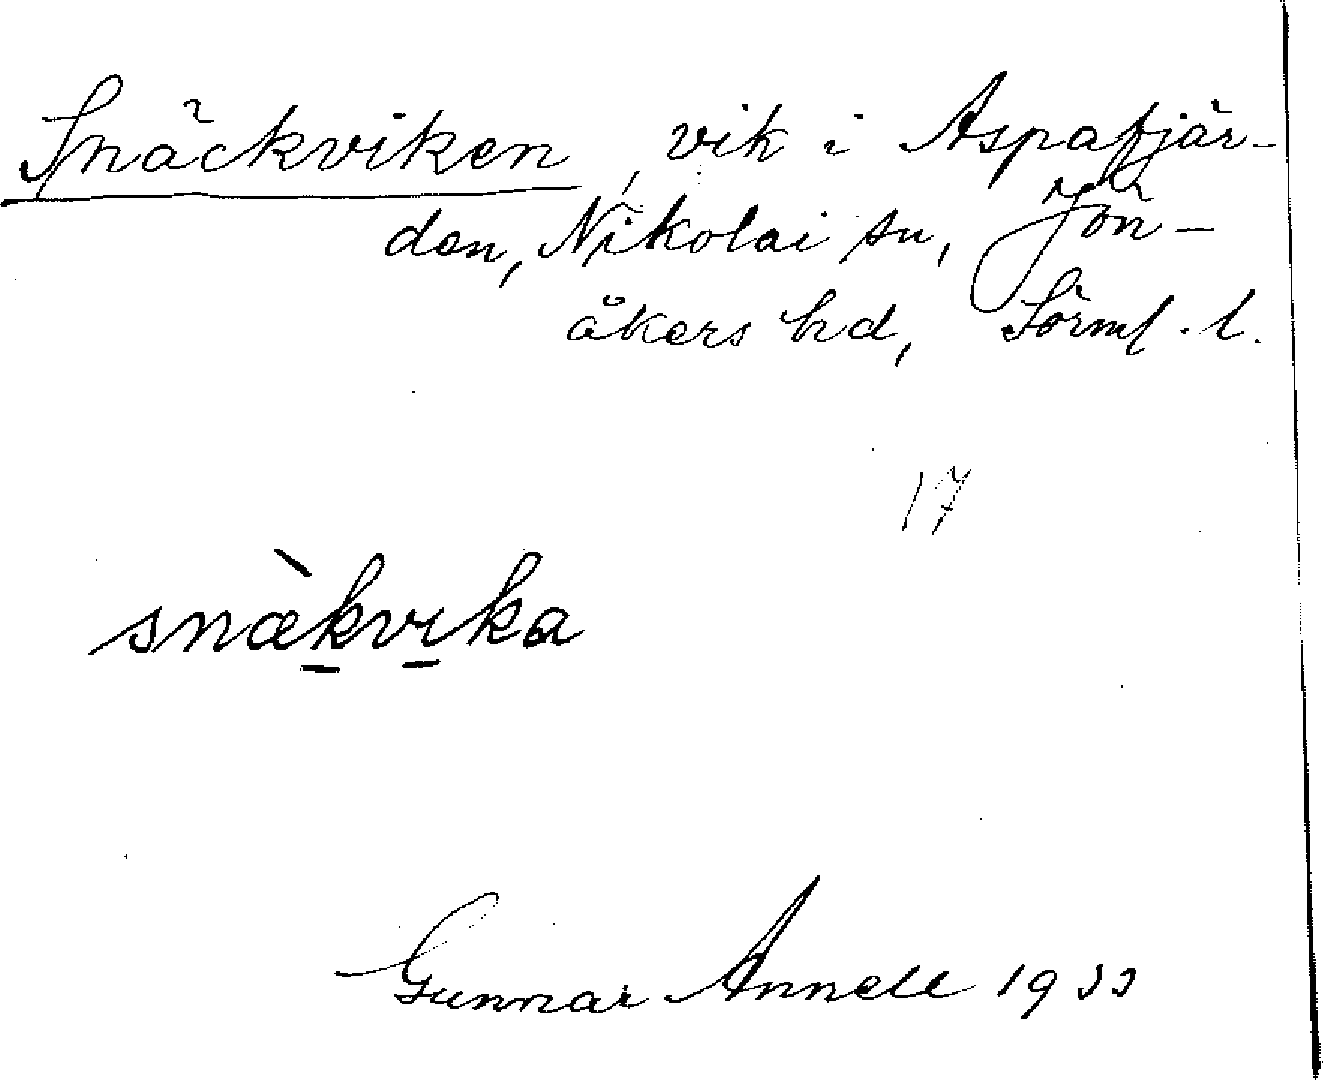 Snäckviken, vik i Aspafjär-
den, Nikolai sn, Jön-
åkers hd, Sörml. l.
17
snæ̀kvika
Gunnar Annell 1933